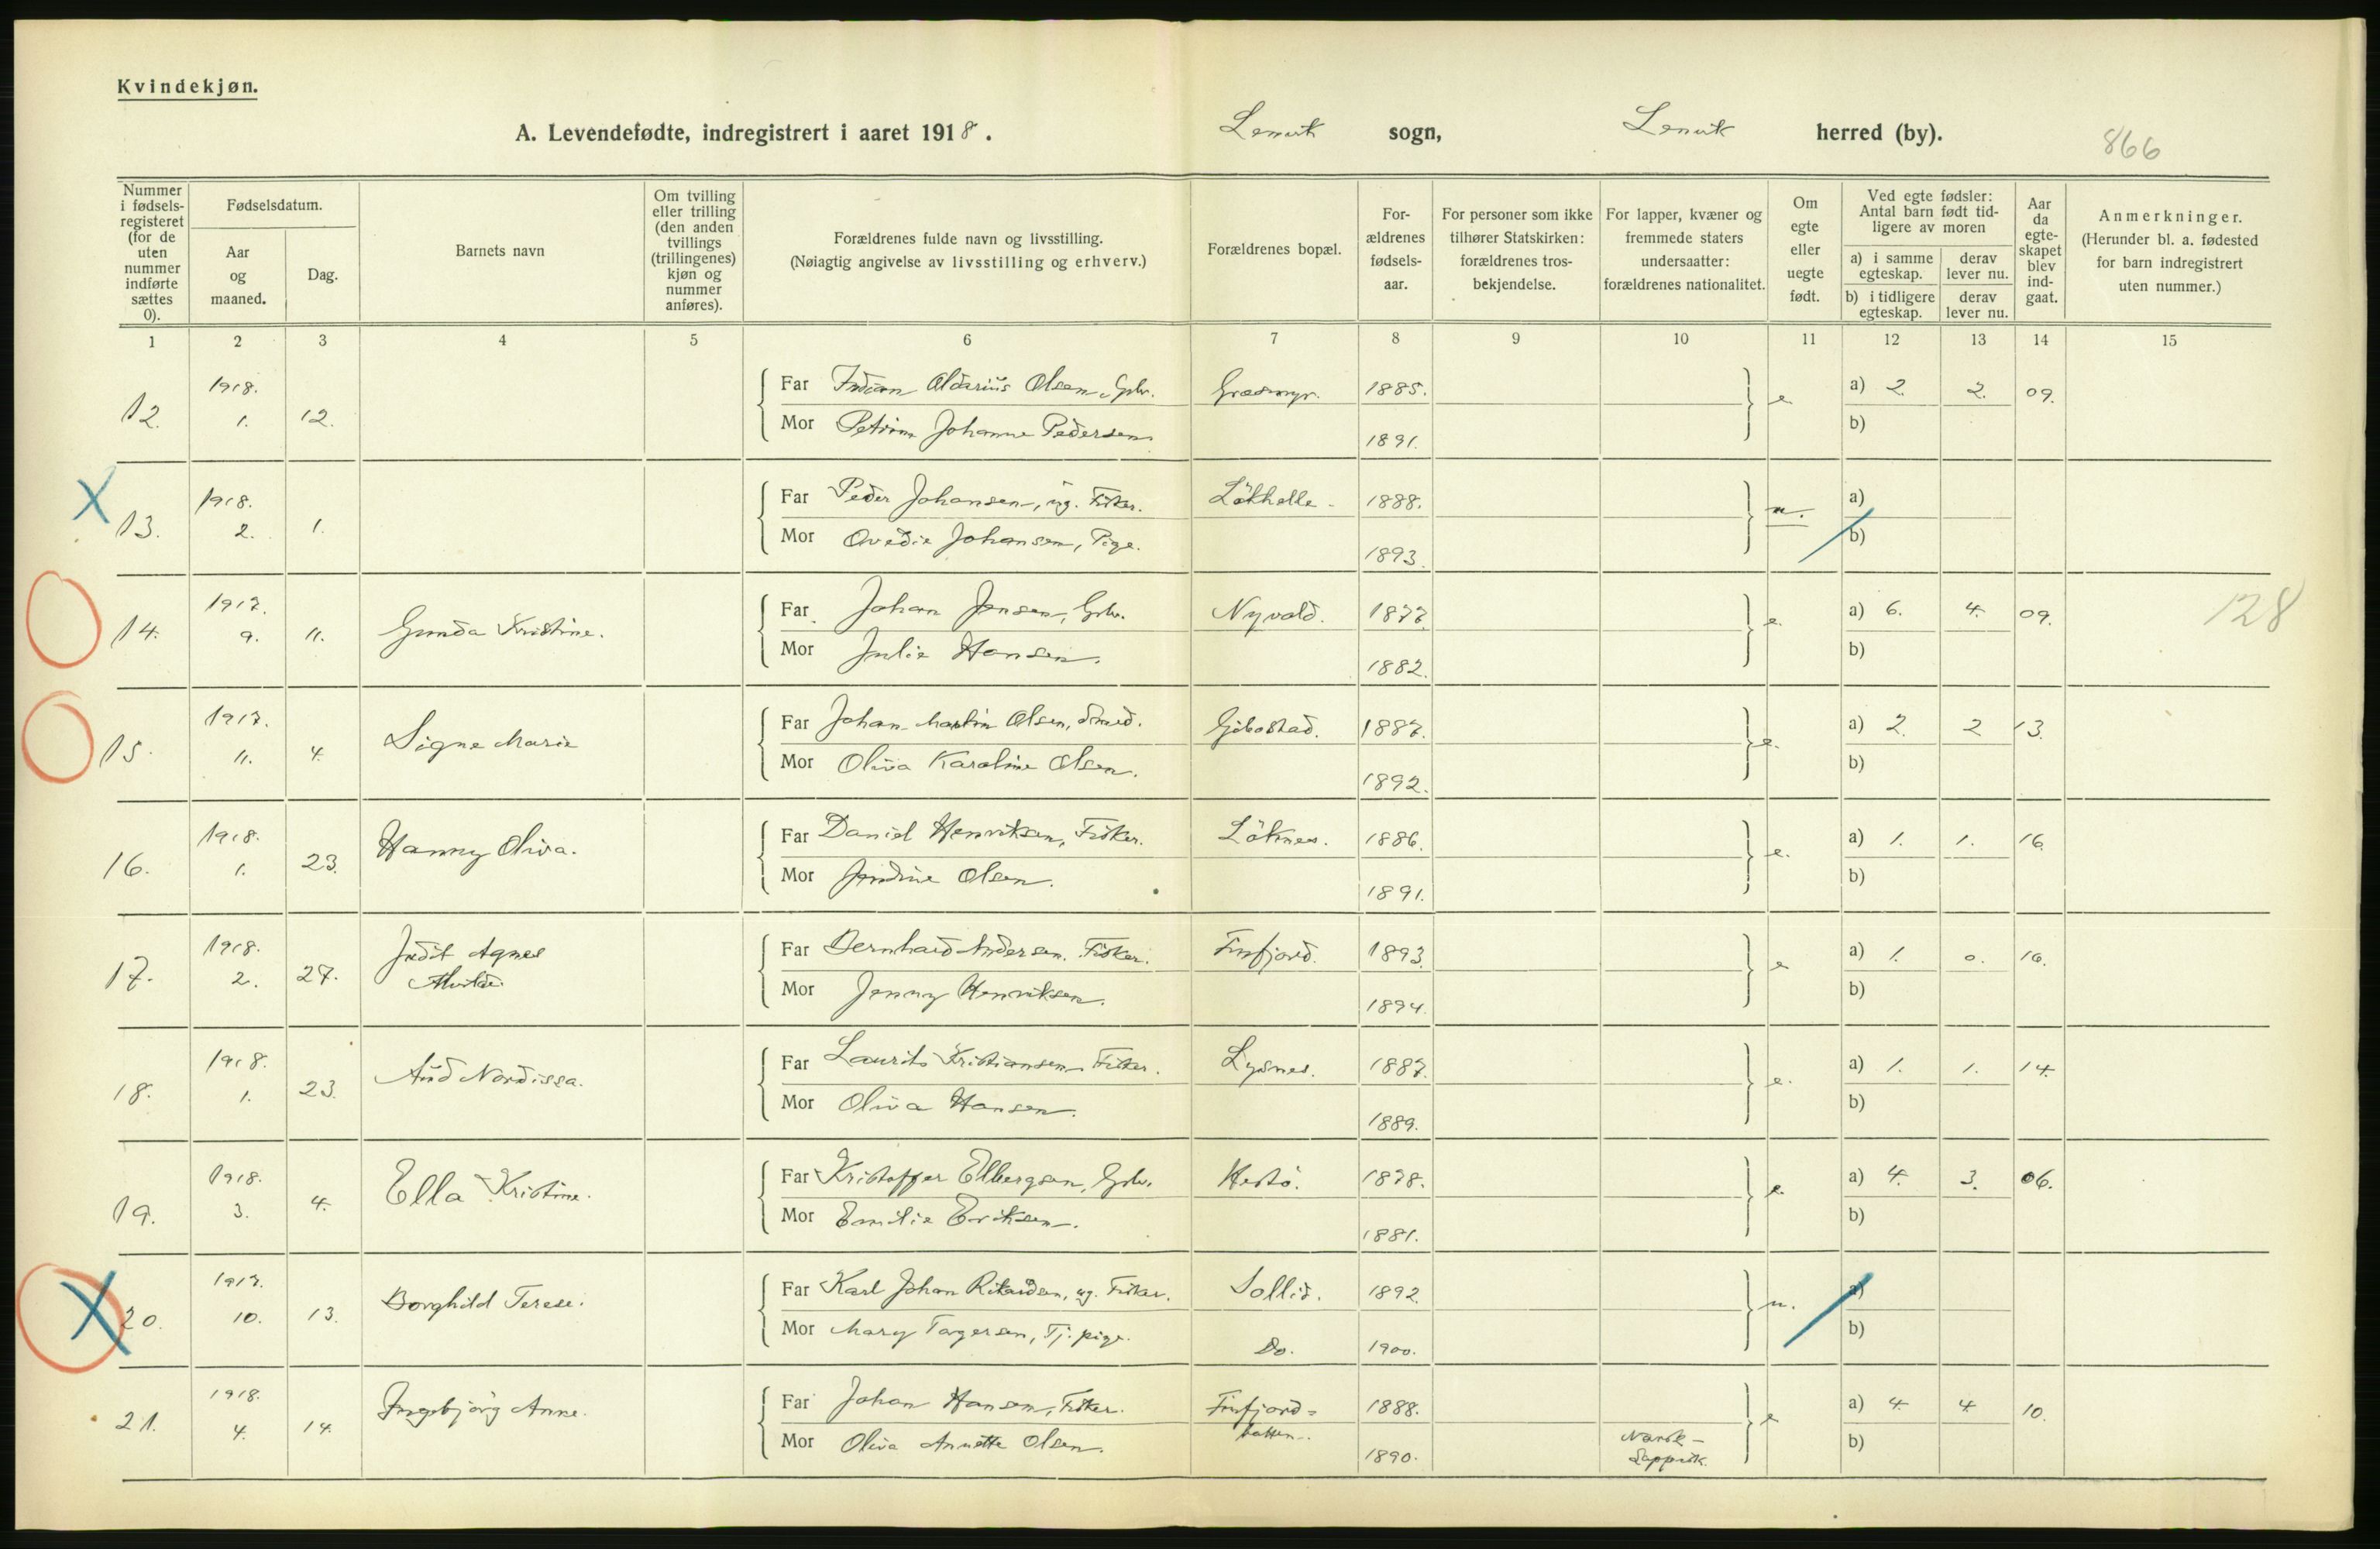 Kvindekjøn.
A. Levendefødte, indregistrert i aaret 1918. Lenvik sogn, Lenvik herred (by). 866
Nummer i fødsels-registeret (for de uten nummer indførte sættes 0).
Fødselsdatum.
Aar og maaned.
Dag.
Barnets navn
Om tvilling eller trilling (den anden tvillings (trillingenes) kjøn og nummer anføres).
Forældrenes fulde navn og livsstilling.
(Nøiagtig angivelse av livsstilling og erhverv.)
Forældrenes bopæl.
For-ældrenes fødsels-aar.
For personer som ikke tilhører Statskirken: forældrenes tros-bekjendelse.
For lapper, kvæner og fremmede staters undersaatter: forældrenes nationalitet.
Om egte eller uegte født.
Ved egte fødsler: Antal barn født tid-ligere av moren
a) i samme egteskap.
derav lever nu.
b) i tidligere egteskap.
derav lever nu.
Aar da egte-skapet blev ind-gaat.
Anmerkninger.
(Herunder bl. a. fødested for barn indregistrert uten nummer.)
1 2 3 4 5 6 7 8 9 10 11 12 13 14 15
12. 1918. 1. 12. Far Aldarius Olsen, Gbr. Græsmyr. 1885. e a) 2. 2. 09.
Mor Petrina Johanne Pedersen 1891. b)
X 13. 1918. 2. 1. Far Peder Johansen, ug. Fisker. Lökhelle 1888. u. a)
Mor Ovedie Johansen, Pige. 1893. b)
14. 1917. 9. 11. Gunda Kristine. Far Johan Jensen, Gbr. Nyvold. 1877. e. a) 6. 4. 09. 128
Mor Julie Hansen. 1882. b)
15. 1917. 11. 4. Signe Marie Far Johan Martin Olsen, Smed. Gibostad. 1887. e. a) 2. 2 13.
Mor Oliva Karoline Olsen. 1892. b)
16. 1918. 1. 23. Hanny Oliva. Far Daniel Henriksen, Fisker. Löknes. 1886. e. a) 1. 1. 16.
Mor Jendine Olsen. 1891. b)
17. 1918. 2. 27. Judit Agnes Far Bernhard Andersen. Fisker. Finfjord. 1893. e a) 1. 0. 16.
Mor Jenny Henriksen. 1894. b)
18. 1918. 1. 23. Aud Nordissa. Far Laurits Kristiansen Fisker. Lysnes. 1887. e. a) 1. 1. 14.
Mor Oliva Hansen. 1889. b)
19. 1918. 3. 4. Ella Kristine. Far Kristoffer Elbergsen, Gbr. Hestö. 1878. e. a) 4. 3. 06.
Mor Emilie Eriksen. 1881. b)
X 20. 1917. 10. 13. Borghild Terese. Far Karl Johan Rikardsen, ug. Fisker. Sollid. 1892. u. a)
Mor Mary Torgersen, Tj. pige. Do. 1900. b)
21. 1918. 4. 14. Ingebjörg Anne. Far Johan Hansen, Fisker. Finfjord= 1888. e a) 4. 4. 10.
Mor Oliva Annette Olsen. botten. 1890. Norsk- Lappisk. b)